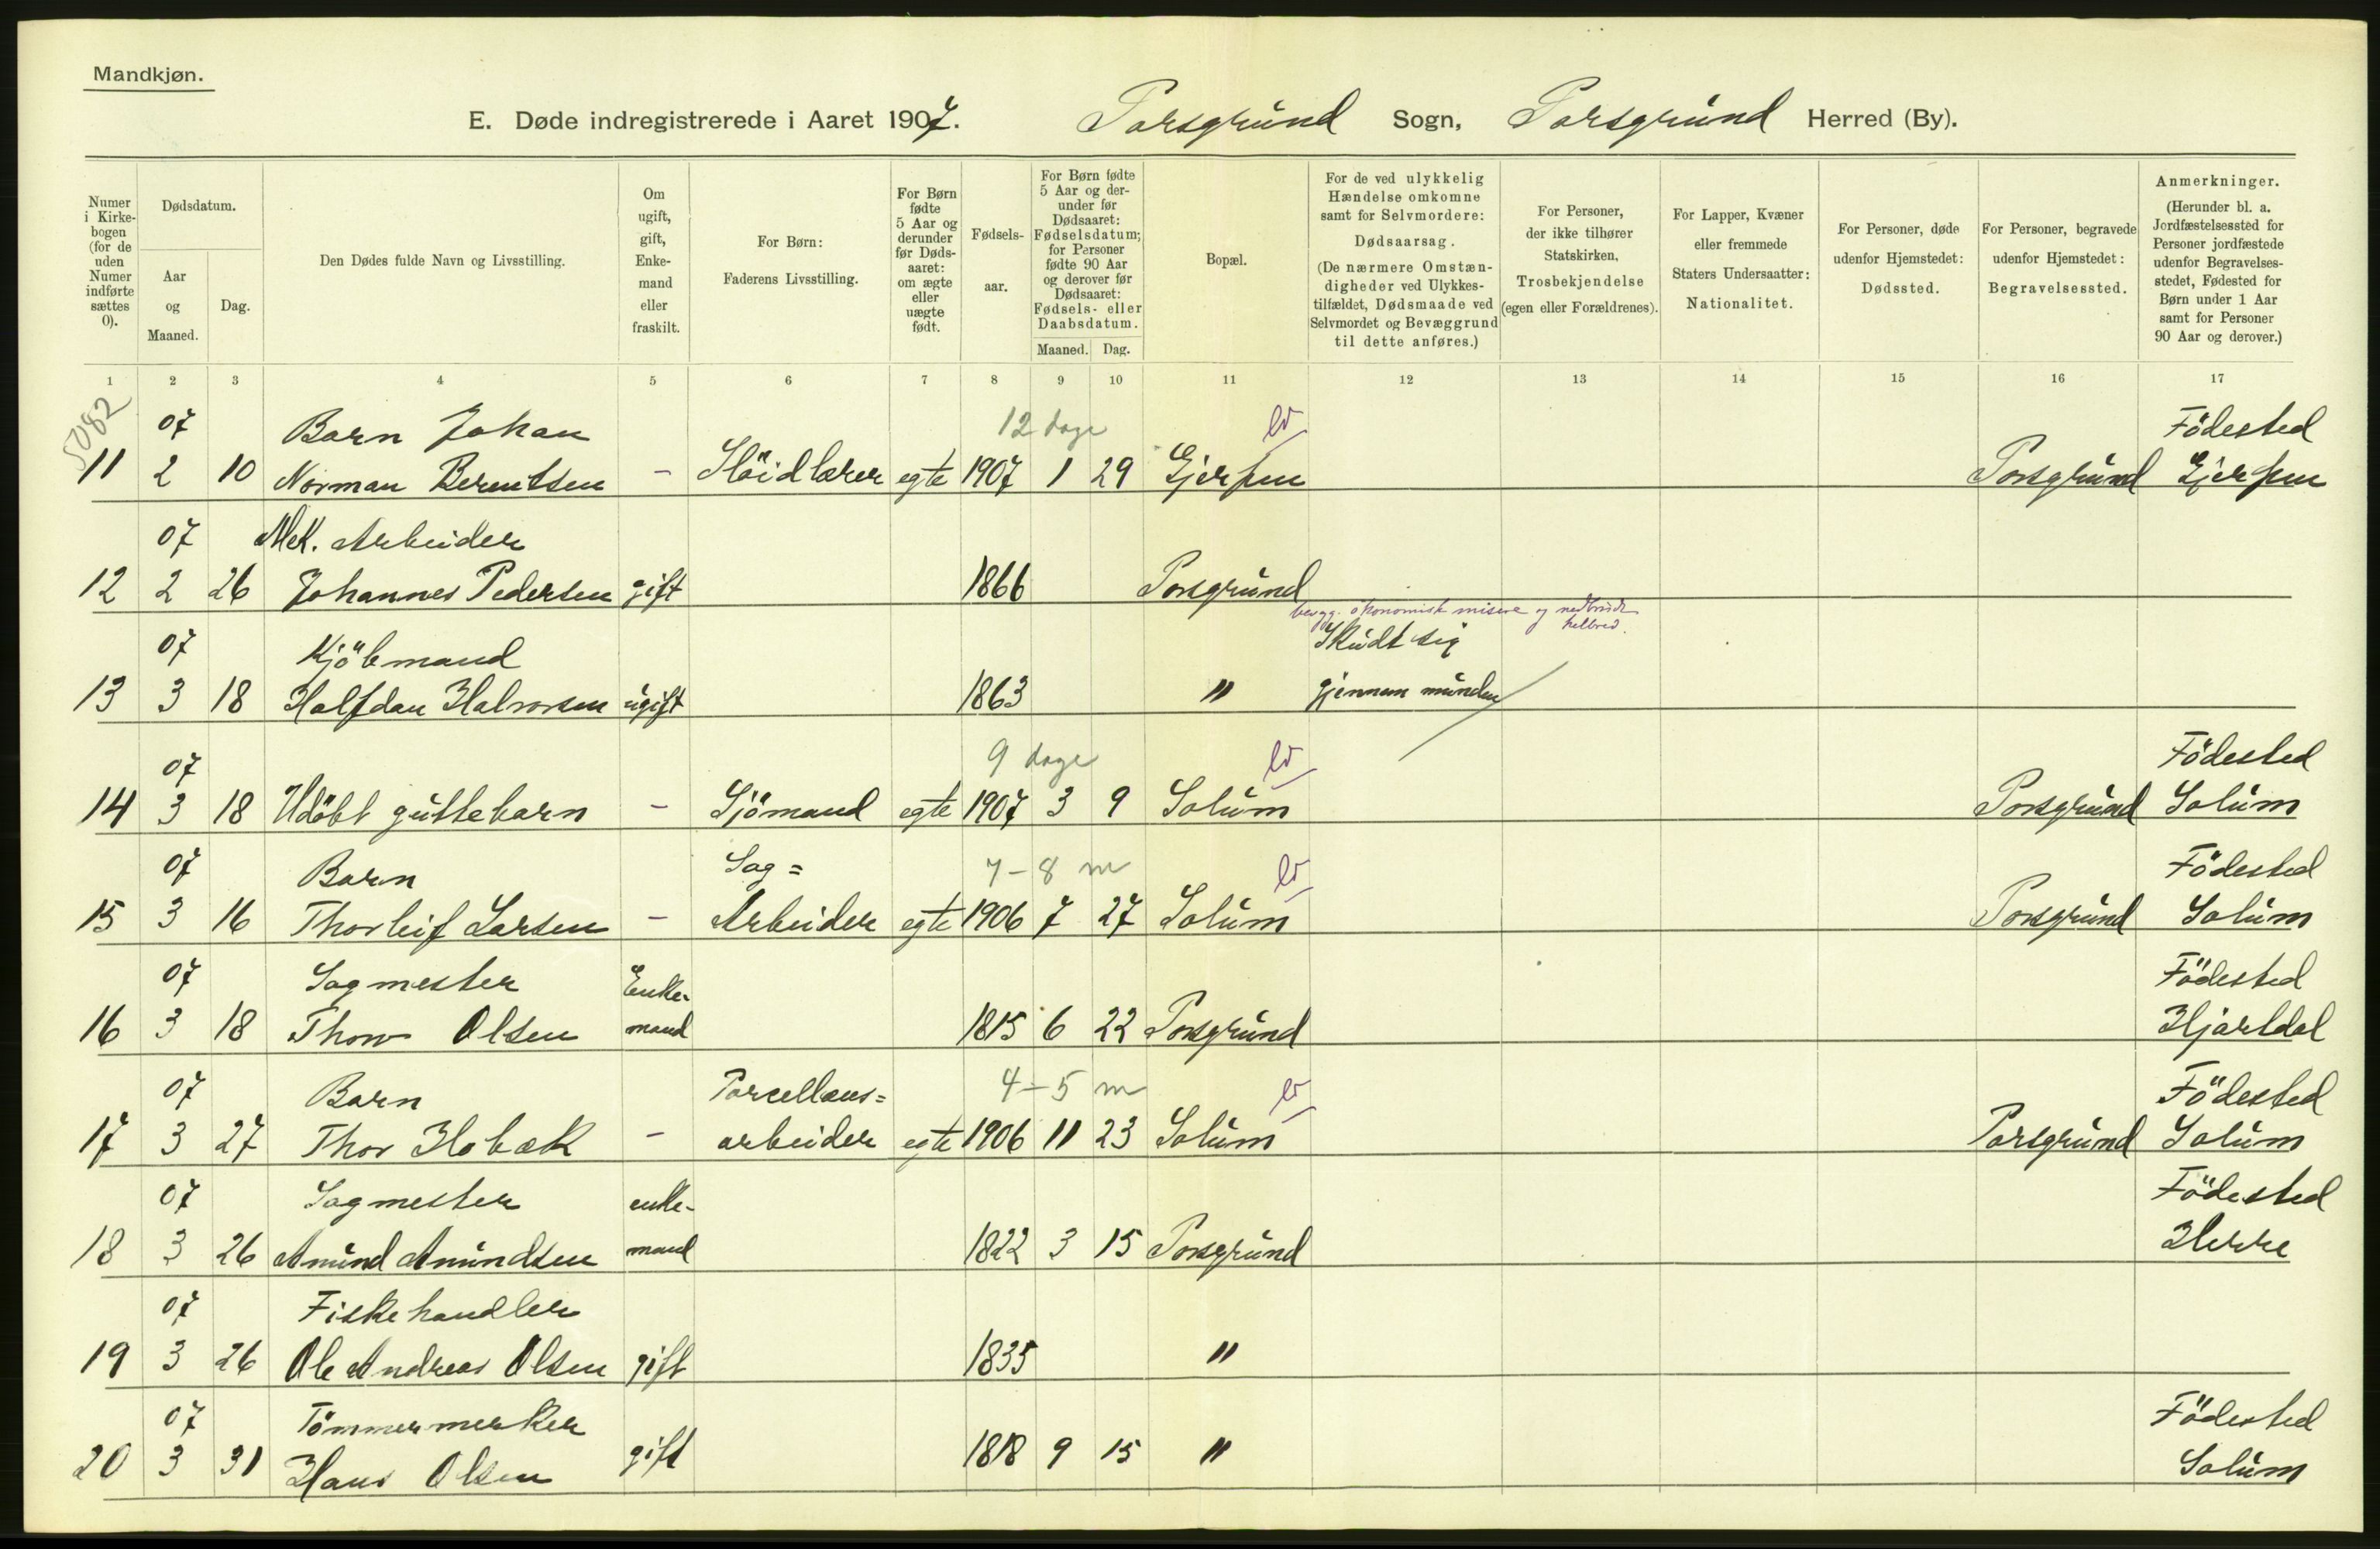 Mandkjøn.
E. Døde indregistrerede i Aaret 1907. Porsgrund Sogn, Porsgrund Herred (By).
Numer i Kirke- bogen (for de uden Numer indførte sættes 0).
Dødsdatum.
Aar og Maaned.
Dag.
Den Dødes fulde Navn og Livsstilling.
Om ugift, gift, Enke- mand eller fraskilt.
For Børn: Faderens Livsstilling.
For Børn fødte 5 Aar og derunder før Døds- aaret: om ægte eller uægte født.
Fødsels- aar.
For Børn fødte 5 Aar og der- under før Dødsaaret: Fødselsdatum; for Personer fødte 90 Aar og derover før Dødsaaret: Fødsels- eller Daabsdatum.
Maaned. Dag.
Bopæl.
For de ved ulykkelig Hændelse omkomne samt for Selvmordere: Dødsaarsag. (De nærmere Omstæn- digheder ved Ulykkes- tilfældet, Dødsmaade ved Selvmordet og Bevæggrund til dette anføres.)
For Personer, der ikke tilhører Statskirken, Trosbekjendelse (egen eller Forældrenes).
For Lapper, Kvæner eller fremmede Staters Undersaatter: Nationalitet.
For Personer, døde udenfor Hjemstedet: Dødssted.
For Personer, begravede udenfor Hjemstedet: Begravelsessted.
Anmerkninger. (Herunder bl. a. Jordfæstelsessted for Personer jordfæstede udenfor Begravelses- stedet, Fødested for Børn under 1 Aar samt for Personer 90 Aar og derover.)
1 2 3 4 5 6 7 8 9 10 11 12 13 14 15 16 17
5082
07 Barn Johan 12 dage Födested
11 2 10 Norman Berentsen - Slöidlærer egte 1907 1 29 Gjerpen Porsgrund Gjerpen
07 Mek. Arbeider
12 2 26 Johannes Pedersen gift 1866 Porsgrund
bevgg. økonomisk misere og nedbrudt helbred.
07 Kjöbmand Skudt sig
13 3 18 Halfdan Halvorsen ugift 1863 " gjennem munden
07 9 dage Födested
14 3 18 Udöbt guttebarn - Sjömand egte 1907 3 9 Solum Porsgrund Solum
07 Barn Sag= 7-8 m Födested
15 3 16 Thorleif Larsen - Arbeider egte 1906 7 27 Solum Porsgrund Solum
07 Sagmester Enke- Födested
16 3 18 Thor Olsen mand 1815 6 22 Porsgrund Hjartdal
07 Barn Porcellæns= 4-5 m Födested
17 3 27 Thor Hobæk - arbeider egte 1906 11 23 Solum Porsgrund Solum
07 Sagmester enke- Födested
18 3 26 Amund Amundsen mand 1822 3 15 Porsgrund Herre
07 Fiskehandler
19 3 26 Ole Andreas Olsen gift 1835 "
07 Tömmermerker Födested
20 3 31 Hans Olsen gift 1818 9 15 " Solum